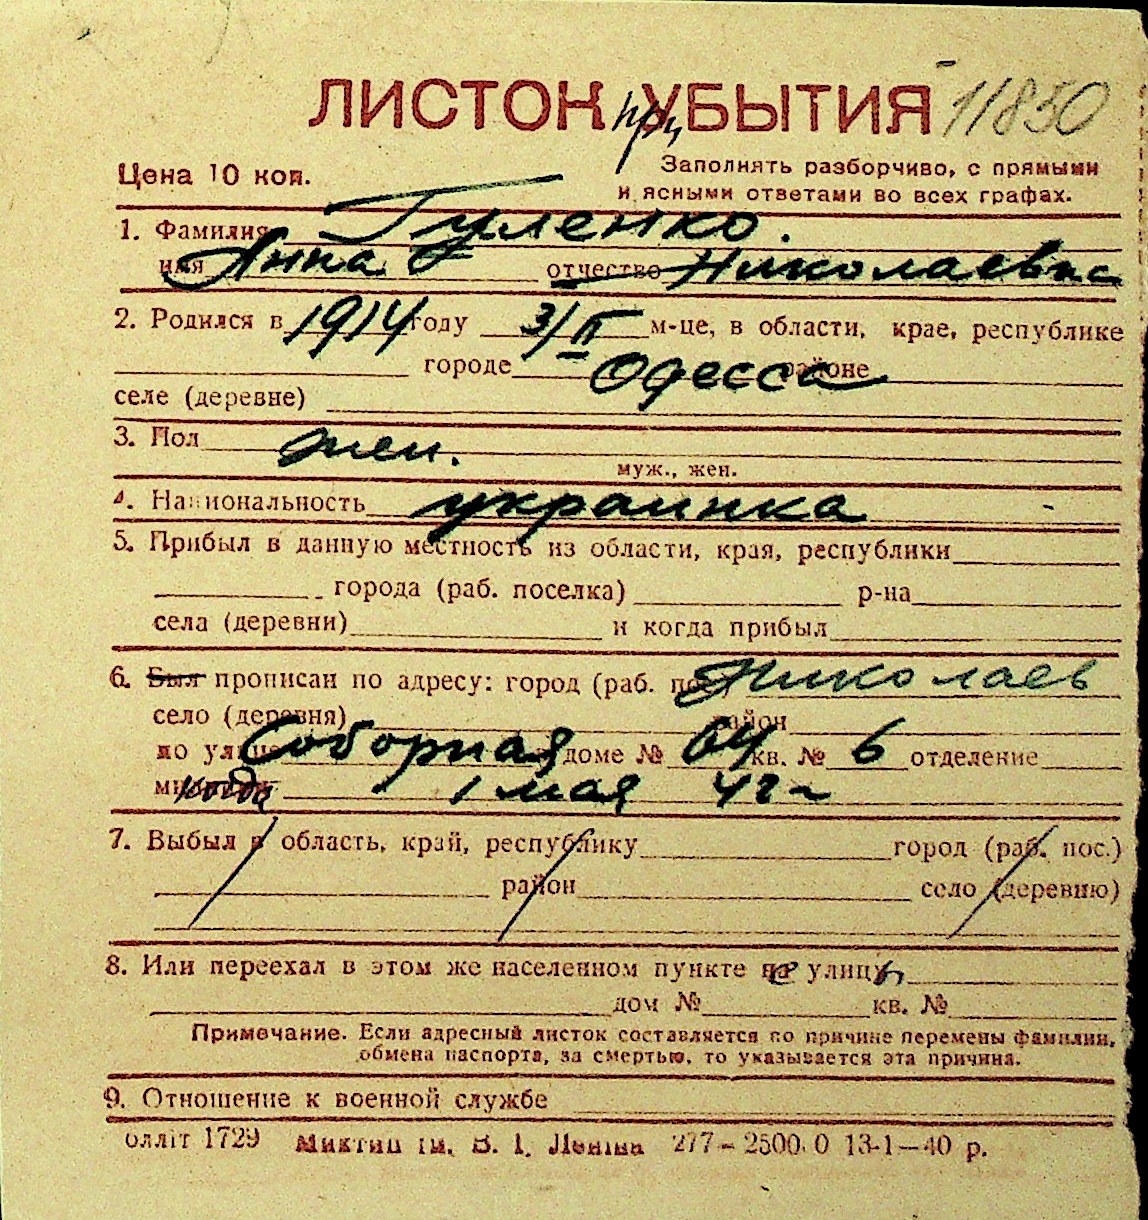 ЛИСТОК при УБЫТИЯ 11850
Цена 10 коп.
Заполнять разборчиво, с прямыми
и ясными ответами во всех графах.
1. Фамилия Гуленко.
имя Анна отчество Николаевна
2. Родился в 1914 году 3/II м-це, в области, крае, республике
городе Одесса районе
селе (деревне)
3. Пол жен.
муж., жен.
4. Национальность украинка
5. Прибыл в данную местность из области, края, республики
города (раб. поселка) р-на
села (деревни) и когда прибыл
6. Был прописан по адресу: город (раб. пос.) Николаев
село (деревня) район
по улице Соборная доме № 64 кв. № 6 отделение
когда 1 мая 42 г.
7. Выбыл в область, край, республику город (раб. пос.)
район село (деревню)
8. Или переехал в этом же населенном пункте с улицы
дом № кв. №
Примечание. Если адресный листок составляется по причине перемены фамилии,
обмена паспорта, за смертью, то указывается эта причина.
9. Отношение к военной службе
олліт 1729 Миктип ім. В. І. Леніна 277–2500.0 13-1–40 р.